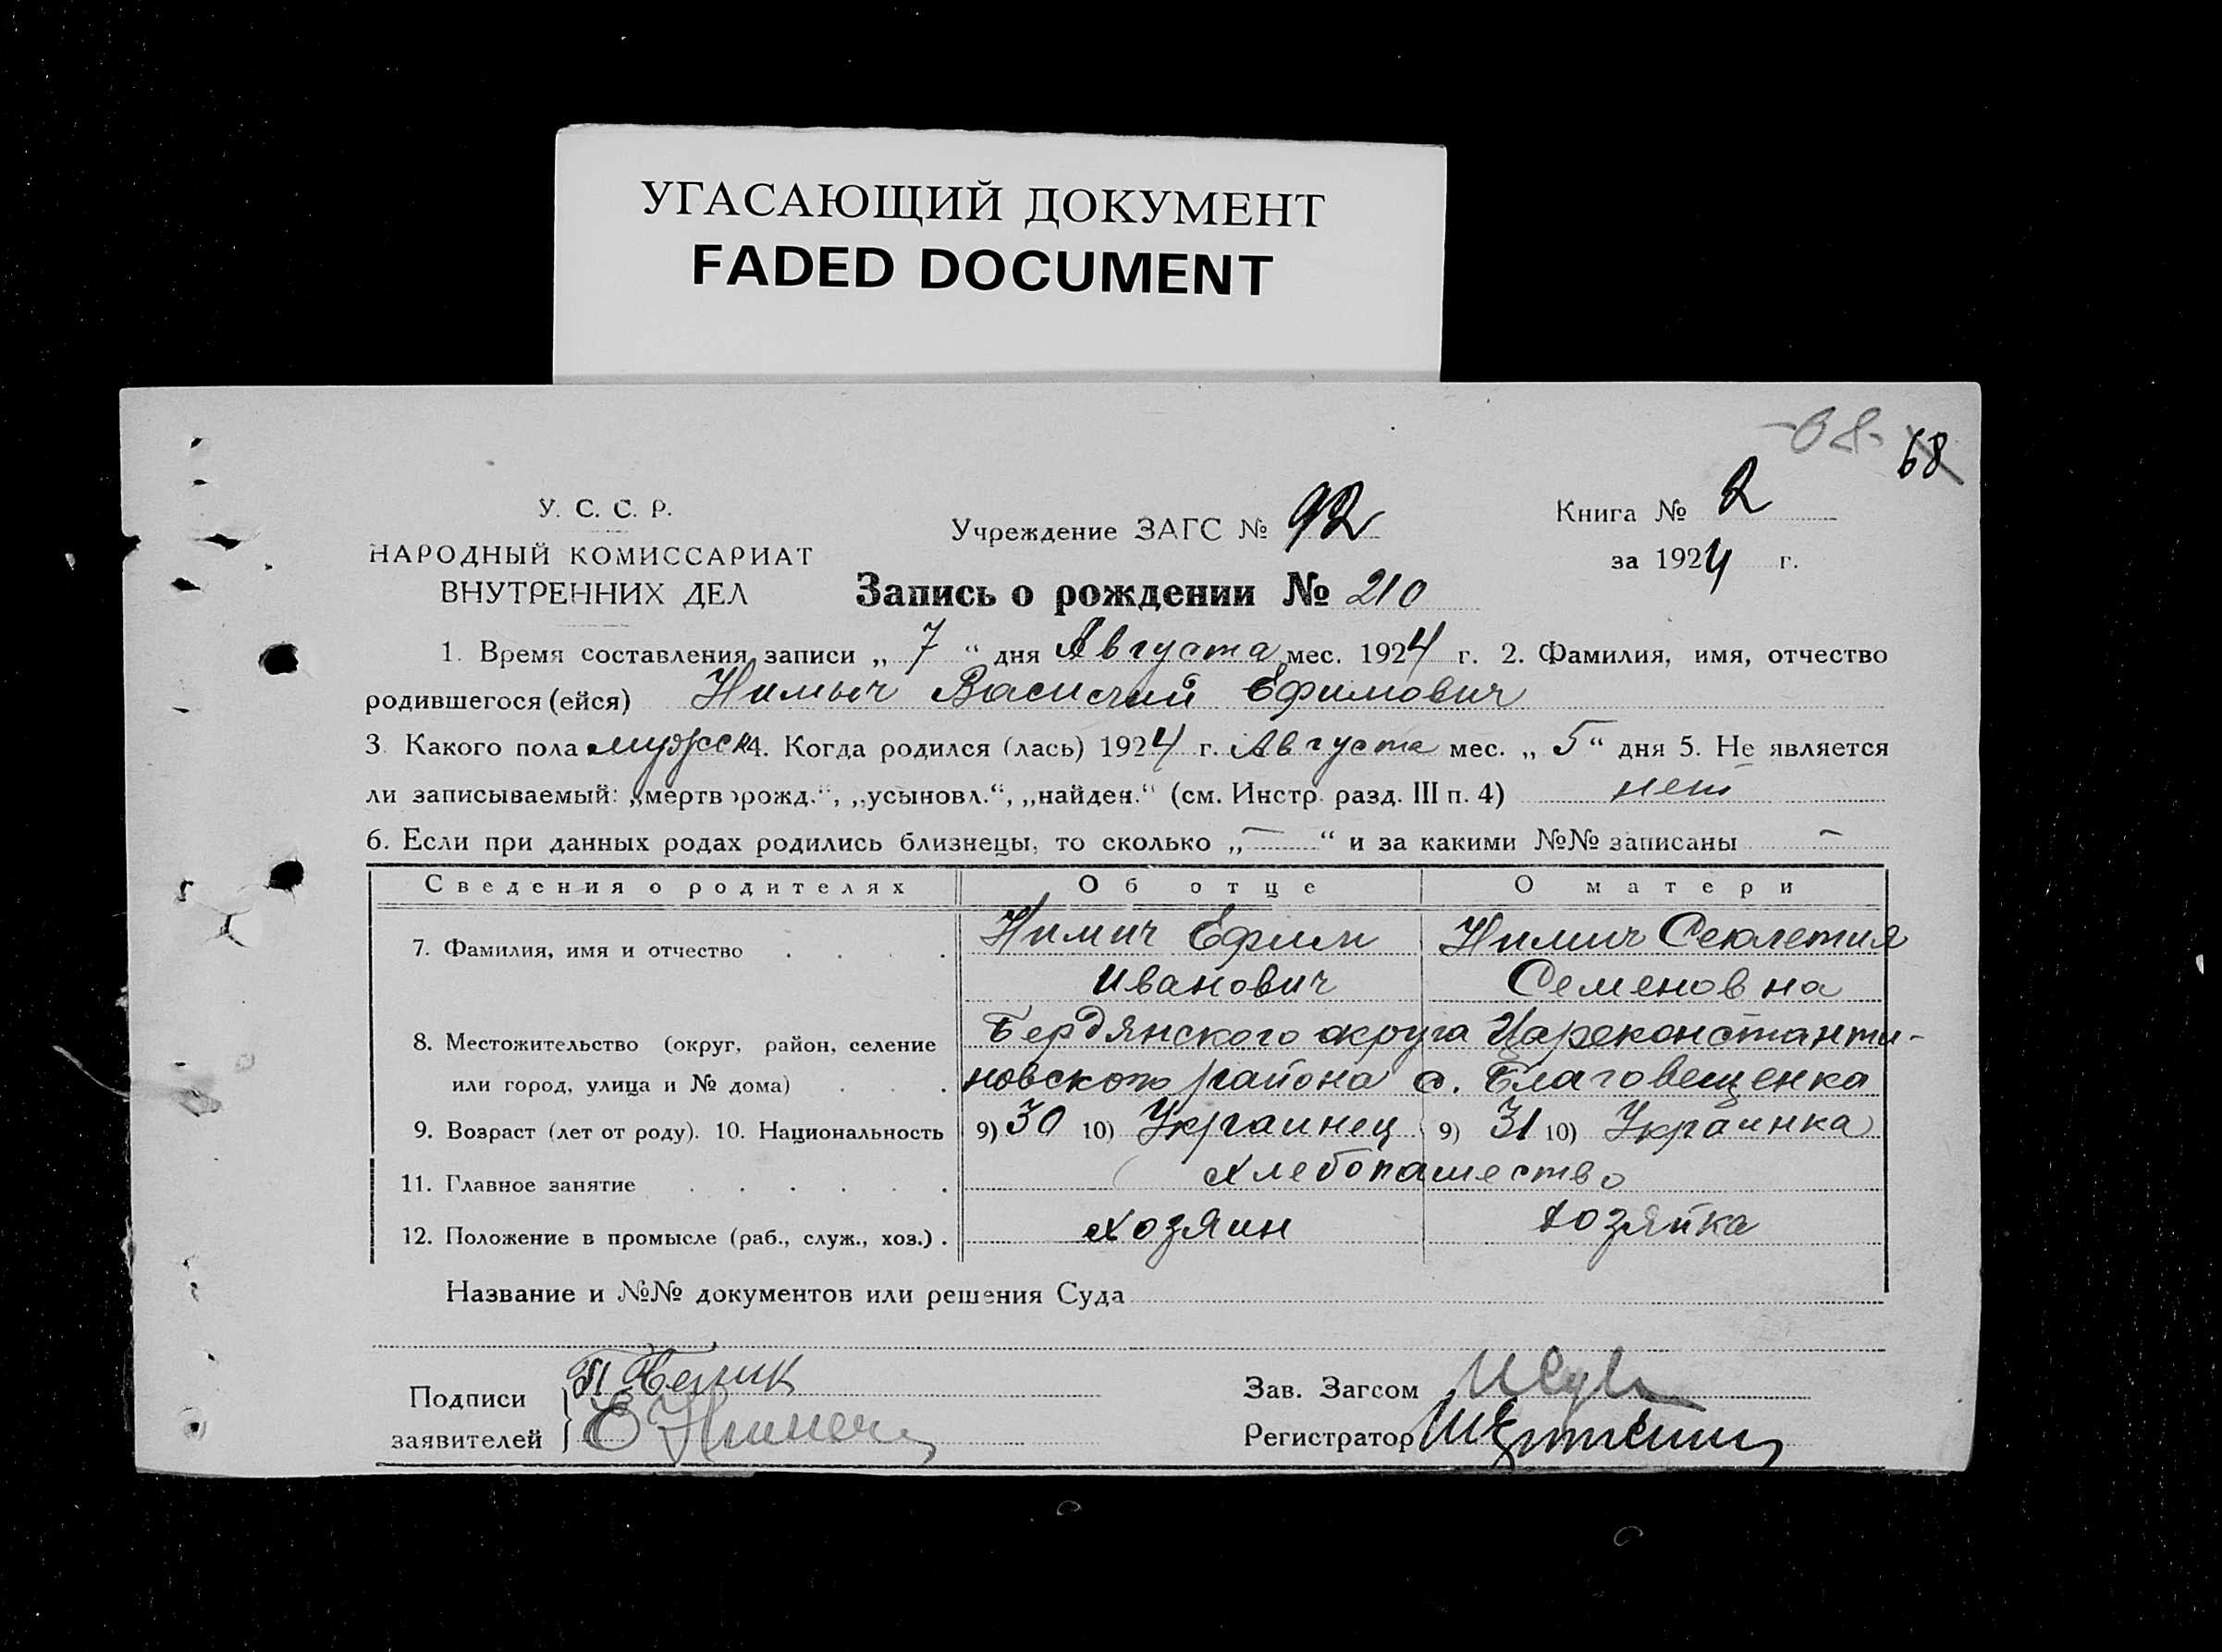 УГАСАЮЩИЙ ДОКУМЕНТ
FADED DOCUMENT
68
У. С. С. Р.
НАРОДНЫЙ КОМИССАРИАТ
ВНУТРЕННИХ ДЕЛ
Учреждение ЗАГС № 92
Книга № 2
за 1924 г.
Запись о рождении № 210
1. Время составления записи „ 7 “ дня Августа мес. 1924 г. 2. Фамилия, имя, отчество
родившегося (ейся) Нимыч Василий Ефимович
3. Какого пола мужск 4. Когда родился (лась) 1924 г. Августа мес. „ 5 “ дня 5. Не является
ли записываемый: „мертворожд.“, „усыновл.“, „найден.“ (см. Инстр. разд. III п. 4) нет
6. Если при данных родах родились близнецы, то сколько „ — “ и за какими №№ записаны —
Сведения о родителях Об отце О матери
7. Фамилия, имя и отчество Нимич Ефим Нимич Секлетия
Иванович Семеновна
8. Местожительство (округ, район, селение Бердянского округа Цареконстанти-
или город, улица и № дома) новского района с. Благовещенка
9. Возраст (лет от роду). 10. Национальность 9) 30 10) Украинец 9) 31 10) Украинка
11. Главное занятие Хлебопашество
12. Положение в промысле (раб., служ., хоз.) Хозяин Хозяйка
Название и №№ документов или решения Суда
Подписи
заявителей
Зав. Загсом
Регистратор